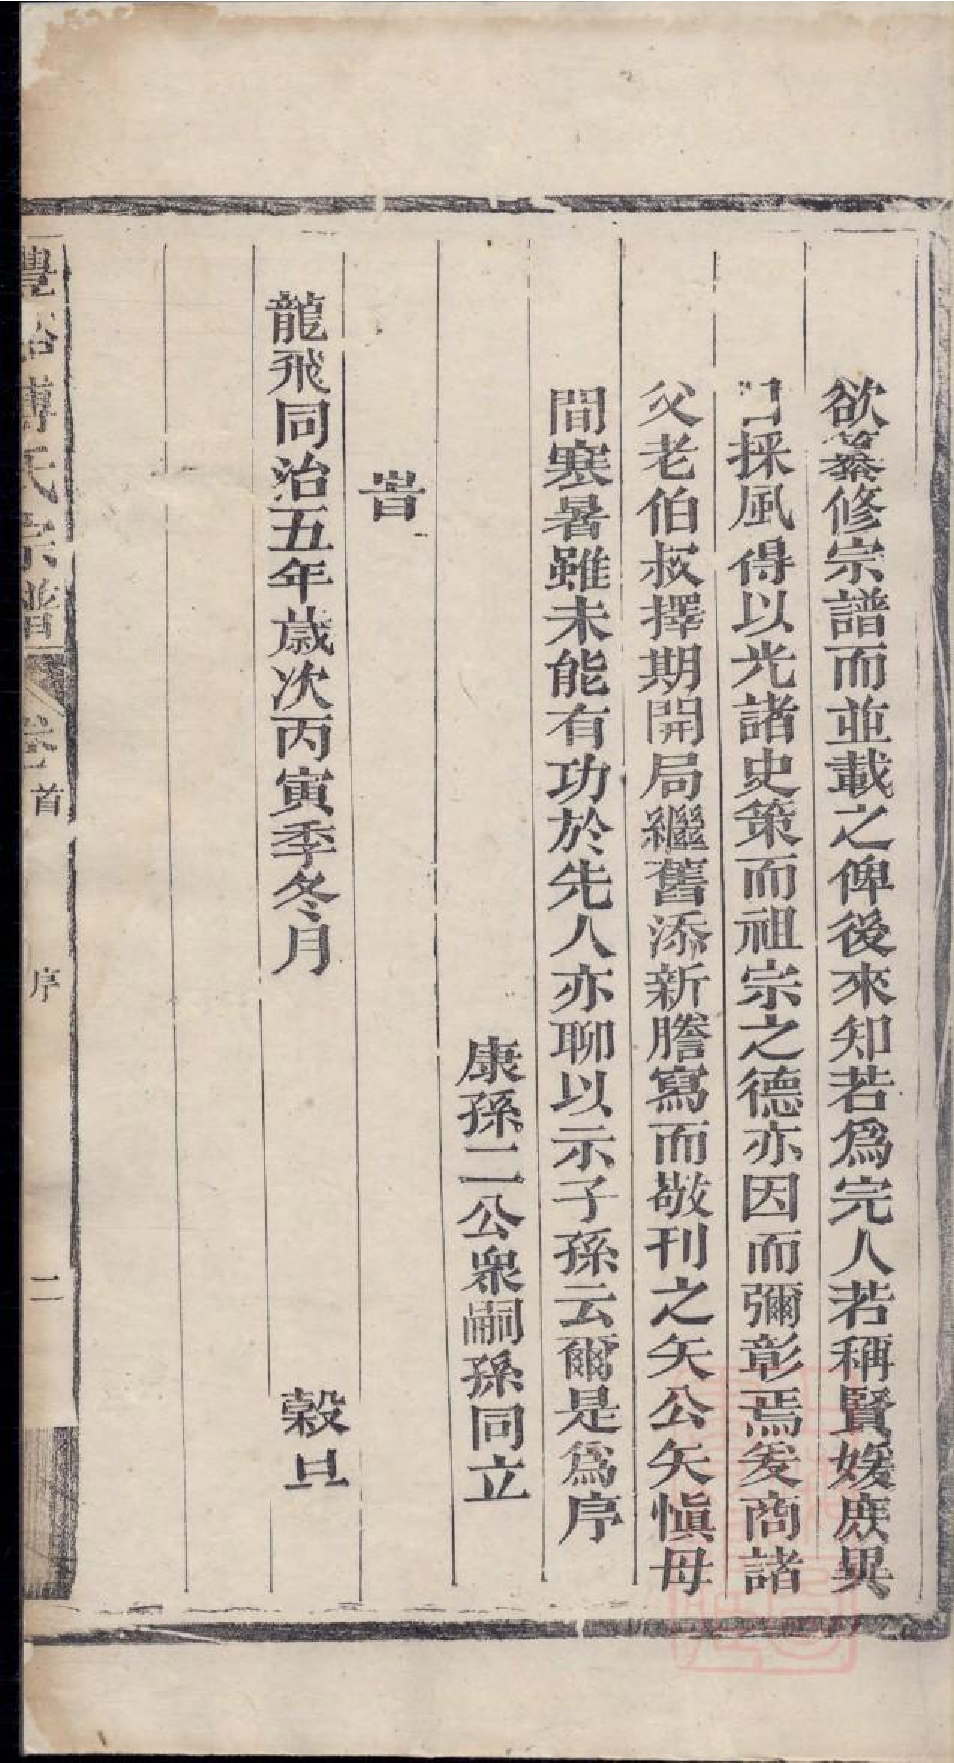 欲纂修宗譜而並載之俾後來知若爲完人若稱賢媛庻異
日採風得以光諸史策而祖宗之德亦因而彌彰焉爰商諸
父老伯叔擇期開局繼舊添新謄寫而敬刊之矢公矢愼毋
間寒暑雖未能有功於先人亦聊以示子孫云爾是爲序
康孫二公衆嗣孫同立
旹
龍飛同治五年歲次丙寅季冬月 穀旦
豐谿傅氏宗譜 卷首 序 二